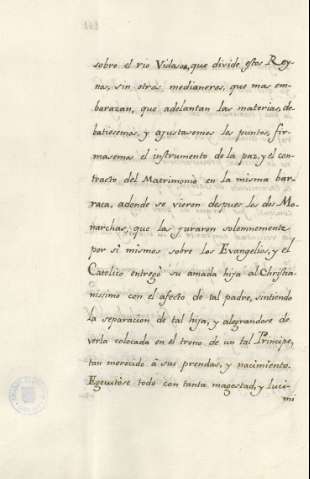 sobre el rio Vidasoa, que divide estos Rey-
nos, sin otros medianeros, que mas em-
barazan, que adelantan las materias, de-
batiesemos, y ajustasemos los puntos, fir-
masemos el instrumento de la paz, y el con-
tracto del Matrimonio en la misma bar-
raca, adonde se vieron despues los dos Mo-
narchas, que las juraron solemnemente
por si mismos sobre los Evangelios, y el
Catolico entregó su amada hija al Christia-
nissimo con el afecto de tal padre, sintiendo
la separacion de tal hija, y alegrandose de
verla colocada en el trono de un tal Principe,
tan merecido á sus prendas, y nacimiento.
Egecutose todo con tanta magestad, y luci-
mi